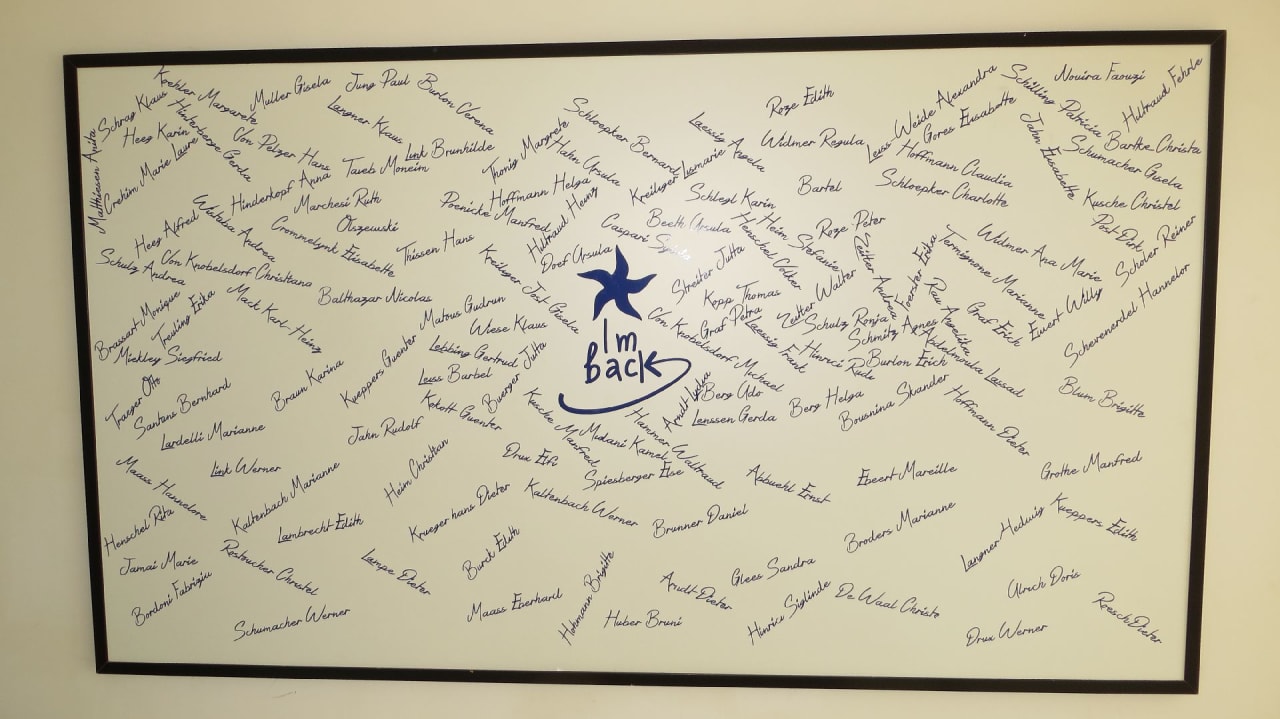 Schrag Klaus
Koehler Margarete
Muller Gisela
Jung Paul
Burlon Verena
Langner Klaus
Link Brunhilde
Heeg Karin
Hinterberge Gerda
Von Pelzer Hans
Taieb Moneim
Matthiesen Anita
Crethim Marie Laure
Hinderkopf Anna
Marchesi Ruth
Olszewski
Heeg Alfred
Wateba Andrea
Crommelynk Elisabette
Thissen Hans
Von Knobelsdorf Christiana
Schulz Andrea
Balthazar Nicolas
Mack Karl-Heinz
Brassart Monique
Treuling Erika
Mickley Siegfried
Traeger Otto
Santens Bernhard
Lardelli Marianne
Braun Karina
Kueppers Guenter
Mateus Gudrun
Wiese Klaus
Lebbing Gertrud
Leuss Barbel
Buerger Jutta
Kokott Guenter
Jahn Rudolf
Link Werner
Maass Hannelore
Henschel Rita
Kaltenbach Marianne
Lambrecht Edith
Heim Christian
Jamai Marie
Bordoni Fabriziu
Restoucher Christel
Schumacher Werner
Lampe Dieter
Krueger hans Dieter
Burck Edith
Maass Eberhard
Thonig Margrete
Hahn Ursula
Schloepker Bernard
Hoffmann Helga
Poenicke Manfred
Hiltraud Heinz
Doef Ursula
Kreiliger Jost Gisela
Kreiliger Lismarie
Laessig Angela
Roze Edith
Widmer Regula
Schlegl Karin
Bartel
Beeth Ursula
Caspari
Henschel Volker
Heim Stefanie
Roze Peter
Streiter Jutta
Kopp Thomas
Graf Petra
Von Knobelsdorf Michael
Laessig Frank
Zeiter Walter
Zeiter Andrea
Schulz Ronja
Schmitz Agnes
Hinrici Rudi
Burlon Erich
I'm
back
Arndt Lydia
Berg Udo
Lenssen Gerda
Berg Helga
Bousnina Skander
Kusche Manfred
Mudani Kamel
Hammer Waltraud
Drux Elfi
Spiesberger Else
Kaltenbach Werner
Brunner Daniel
Abbuehl Ernst
Ebert Mareille
Hoffmann Dieter
Broders Marianne
Hokmann Brigitte
Huber Bruni
Arndt Dieter
Glees Sandra
Hinrici Siglinde
De Waal Christo
Leuss-Weide Alexandra
Gores Elisabette
Hoffmann Claudia
Schloepker Charlotte
Schilling Patricia
Nouira Faouzi
Hiltraud Fehrle
Bartke Christa
Schumacher Gisela
Jahn Elisabette
Kusche Christel
Post Dirk
Scholer Reiner
Widmer Ana Marie
Termignone Marianne
Foerster Erika
Rau Annelita
Graf Erich
Ewert Willy
Abdelmoula Lassad
Schevenerdel Hannelor
Blum Brigitte
Grothe Manfred
Langner Hedwig
Kueppers Edith
Ulrich Doris
Roesch Dieter
Drux Werner